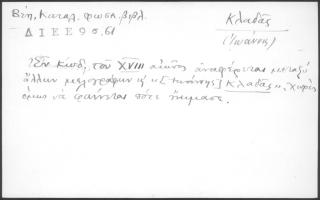 Βέη, Καταλ. Φωσκ. Βιβλ.
ΔΙΕΕ 9 σ. 61
Κλαδᾶς
(Ἰωάννης)
Ἐν κώδ. τοῦ XVIII αἰῶνος ἀναφέρεται μεταξὺ
ἄλλων μελογράφων κ' "[Ἰωάννης] Κλαδᾶς", χωρὶς
ὅμως νὰ φαίνεται πότε ἤκμασε.